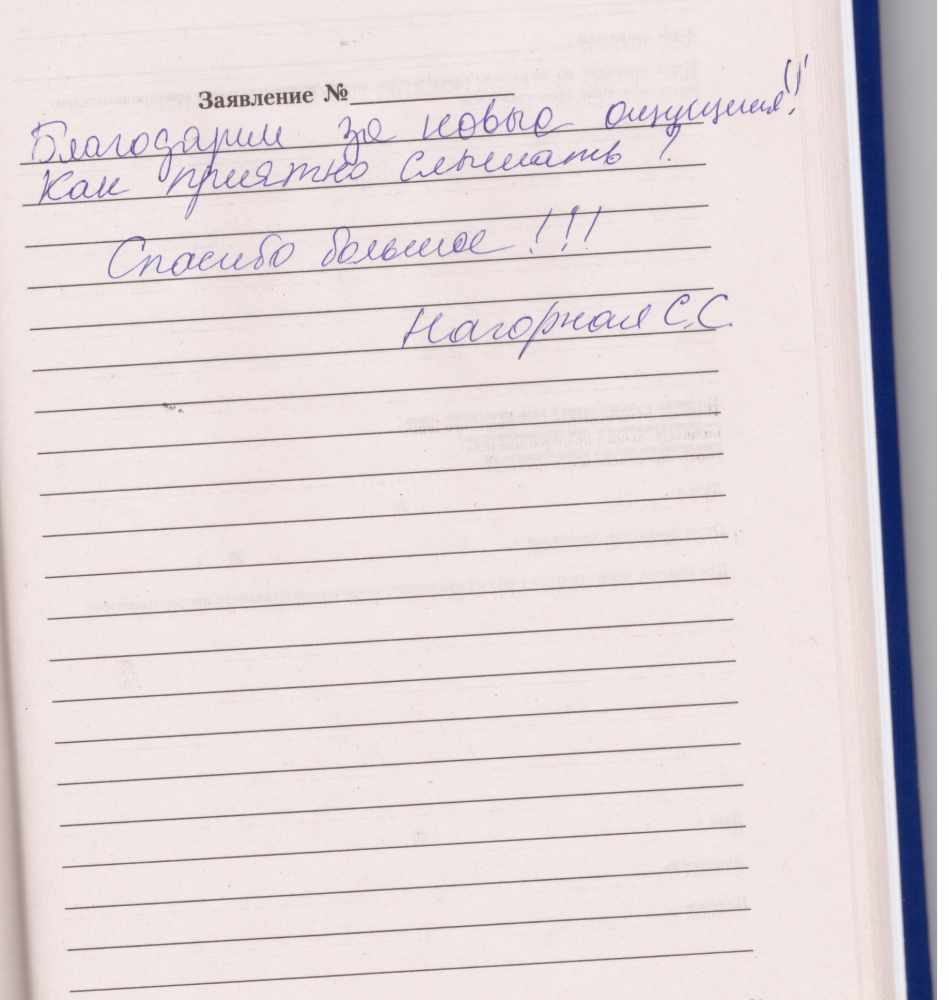 Заявление №
Благодарим за новые ощущения!!!
Как приятно слышать!
Спасибо большое!!!
Нагорная С.С.